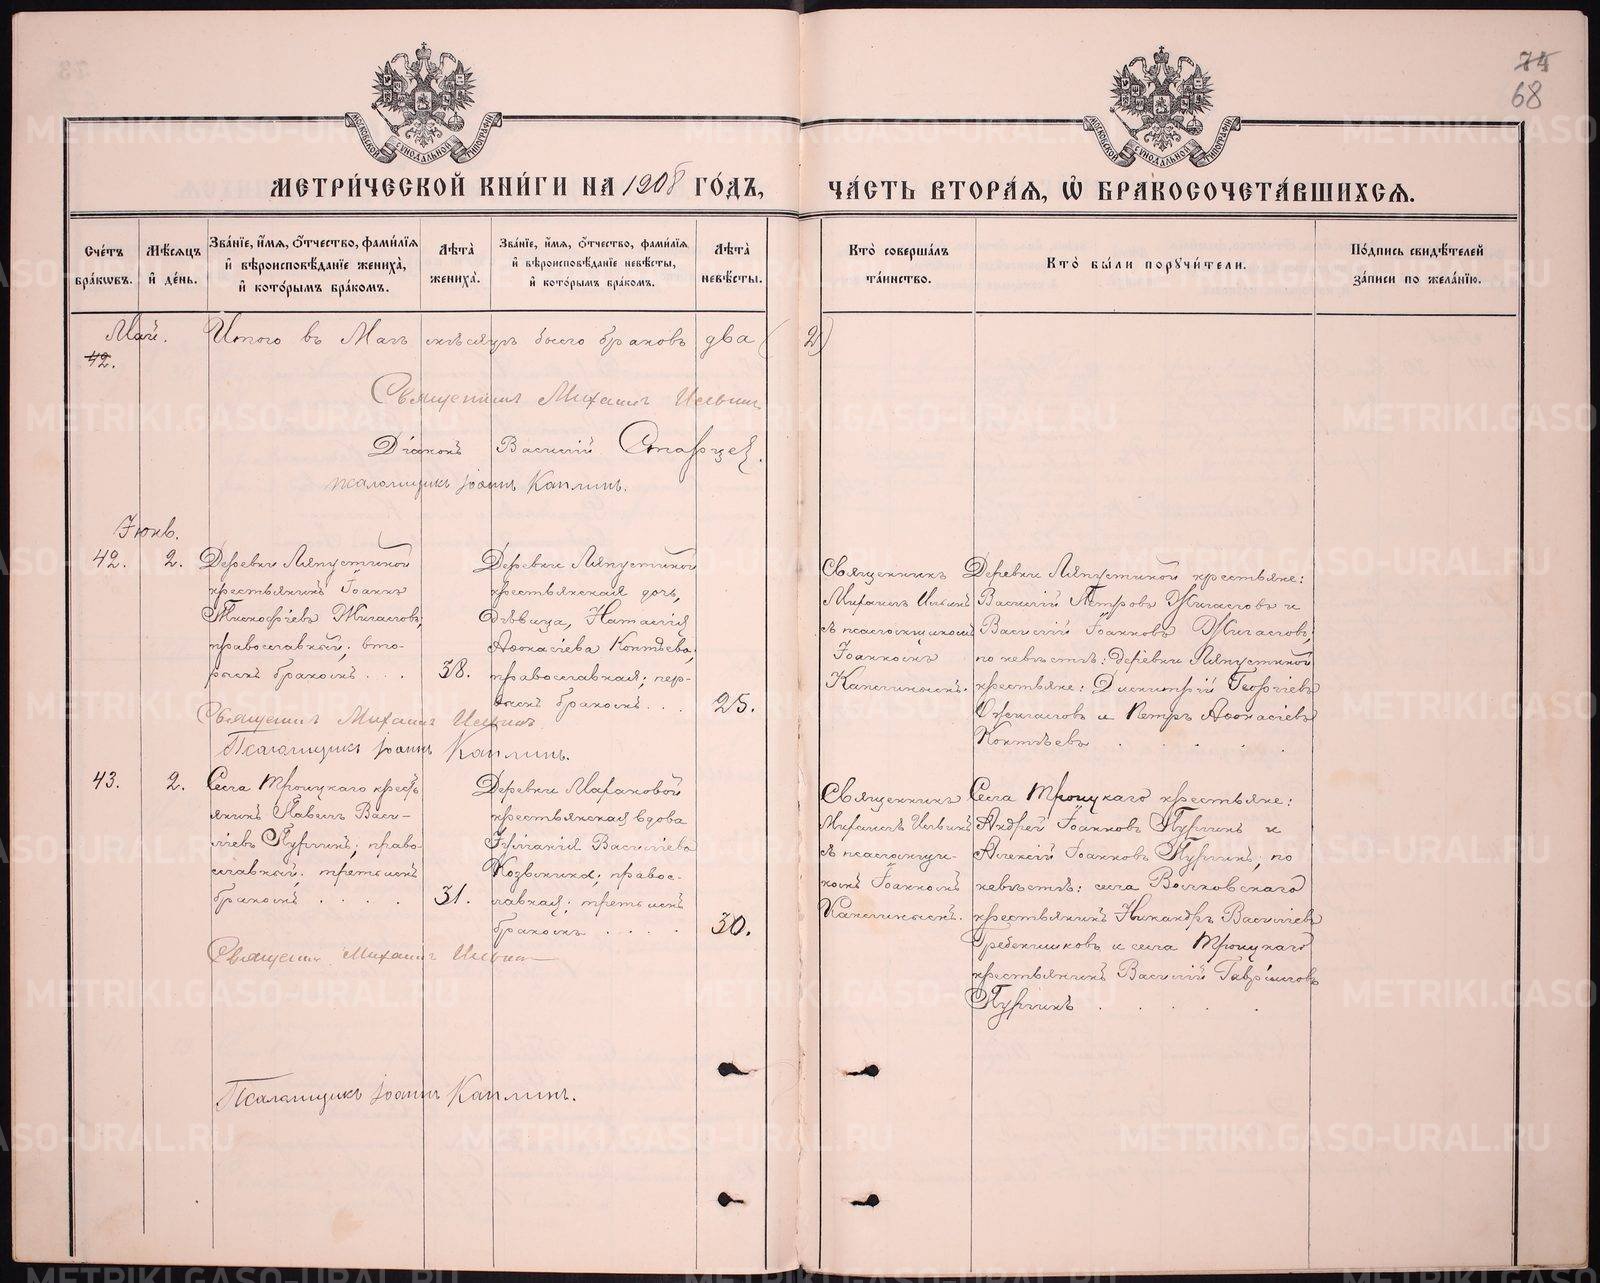 75
68
МОСКОВСКОЙ СУНОДАЛЬНОЙ ТИПОГРАФІИ
МОСКОВСКОЙ СУНОДАЛЬНОЙ ТИПОГРАФІИ
МЕТРИ́ЧЕСКОЙ КНИ́ГИ НА 1908 ГО́ДЪ,
ЧА́СТЬ ВТОРА́Я, Ѿ БРАКОСОЧЕТА́ВШИХСЯ.
Сче́тъ бра́кѡвъ.
Мѣ́сяцъ и де́нь.
Зва́нїе, и́мя, о́тчество, фами́лїя и вѣроисповѣ́данїе жениха̀, и кото́рымъ бра́комъ.
Лѣта̀ жениха̀.
Зва́нїе, и́мя, о́тчество, фами́лїя и вѣроисповѣ́данїе невѣ́сты, и кото́рымъ бра́комъ.
Лѣта̀ невѣ́сты.
Кто̀ соверша́лъ та́инство.
Кто̀ бы́ли пору́чители.
По́дпись свидѣ́телей за́писи по жела́нїю.
Май.
42.
Итого въ Маѣ мѣсяцѣ было браковъ два (2)
Священникъ Михаилъ Ильинъ
Діаконъ Василій Старцев.
Псаломщикъ Іоаннъ Каплинъ.
Іюнь.
42. 2.
Деревни Ляпустиной
крестьянинъ Іоаннъ
Жигаловъ;
православный; вто-
рымъ бракомъ . . . 38.
Деревни Ляпустиной
крестьянская дочь,
дѣвица, Наталія
Аѳонасіева Коптѣева;
православная; пер-
вымъ бракомъ . . . 25.
Священникъ
Михаилъ Ильинъ
съ псаломщикомъ
Іоанномъ
Каплинымъ.
Деревни Ляпустиной крестьяне:
Василій Петровъ Жигаловъ и
Василій Іоанновъ Жигаловъ;
по невѣстѣ: деревни Ляпустиной
крестьяне: Димитрій Георгіевъ
и Петръ Аѳонасіевъ
Коптѣевъ . . . .
Священникъ Михаилъ Ильинъ
Псаломщикъ Іоаннъ Каплинъ.
43. 2.
Села Троицкаго кресть-
янинъ Павелъ Васи-
ліевъ Пургинъ; право-
славный; третьимъ
бракомъ . . . . 31.
Деревни Марамовой
крестьянская вдова
Іуліанія Василіева
Козьмина; правос-
лавная; третьимъ
бракомъ . . . . 30.
Священникъ
Михаилъ Ильинъ
съ псаломщи-
комъ Іоанномъ
Каплинымъ.
Села Троицкаго крестьяне:
Андрей Іоанновъ Пургинъ и
Алексій Іоанновъ Пургинъ; по
невѣстѣ: села Волковскаго
крестьянинъ Никандръ Василіевъ
Гребенщиковъ и села Троицкаго
крестьянинъ Василій Гавріиловъ
Пургинъ . . . .
Священникъ Михаилъ Ильинъ
Псаломщикъ Іоаннъ Каплинъ.
METRIKI.GASO-URAL.RU